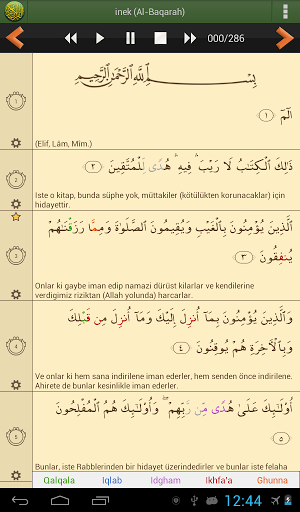 inek (Al-Baqarah)
000/286
بِسْمِ ٱللَّهِ ٱلرَّحْمَٰنِ ٱلرَّحِيمِ
١
الٓمٓ ١
(Elif, Lâm, Mîm.)
٢
ذَٰلِكَ ٱلْكِتَٰبُ لَا رَيْبَ ۛ فِيهِ ۛ هُدًى لِّلْمُتَّقِينَ ٢
Iste o kitap, bunda süphe yok, müttakiler (kötülükten korunacaklar) için
hidayettir.
٣
ٱلَّذِينَ يُؤْمِنُونَ بِٱلْغَيْبِ وَيُقِيمُونَ ٱلصَّلَوٰةَ وَمِمَّا رَزَقْنَٰهُمْ
يُنفِقُونَ ٣
Onlar ki gaybe iman edip namazi dürüst kilarlar ve kendilerine
verdigimiz riziktan (Allah yolunda) harcarlar.
٤
وَٱلَّذِينَ يُؤْمِنُونَ بِمَآ أُنزِلَ إِلَيْكَ وَمَآ أُنزِلَ مِن قَبْلِكَ
وَبِٱلْءَاخِرَةِ هُمْ يُوقِنُونَ ٤
Ve onlar ki hem sana indirilene iman ederler, hem senden önce indirilene.
Ahirete de bunlar kesinlikle iman ederler.
٥
أُو۟لَٰٓئِكَ عَلَىٰ هُدًى مِّن رَّبِّهِمْ ۖ وَأُو۟لَٰٓئِكَ هُمُ ٱلْمُفْلِحُونَ
٥
Bunlar, iste Rabblerinden bir hidayet üzerindedirler ve bunlar iste felaha
Qalqala Iqlab Idgham Ikhfa'a Ghunna
12:44